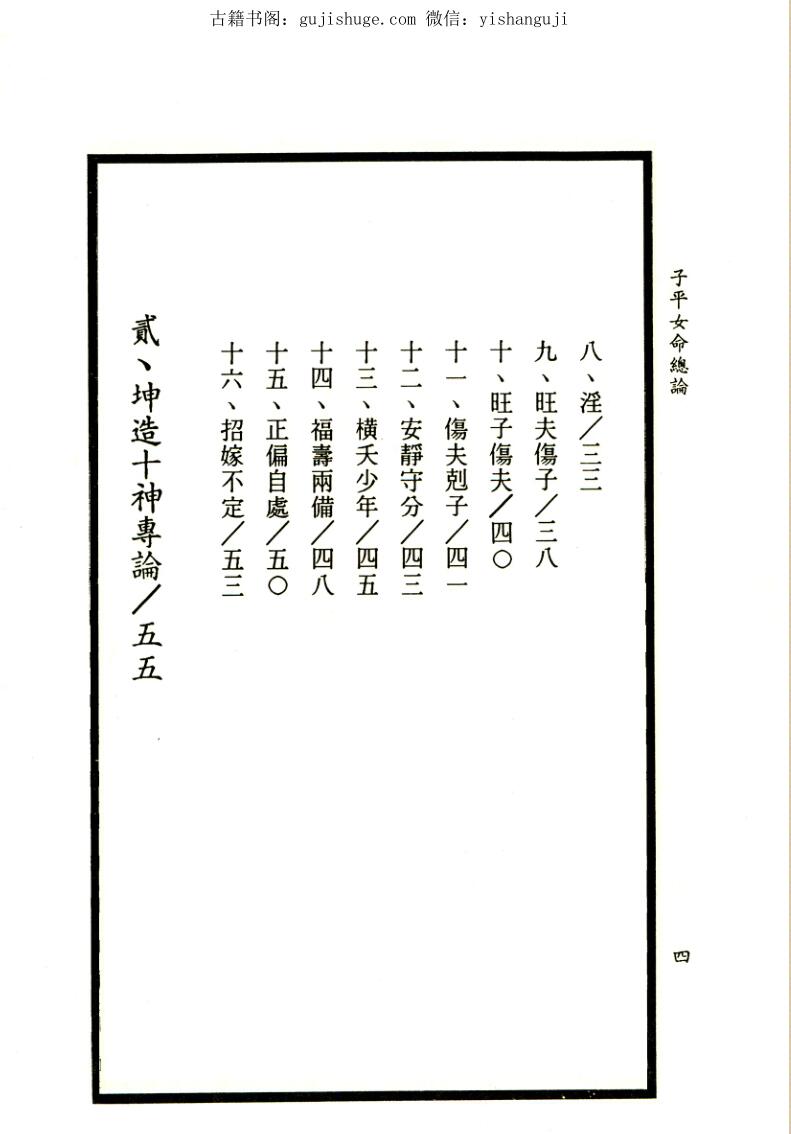 古籍书阁：gujishuge.com 微信：yishanguji
子平女命總論
八、淫／三三
九、旺夫傷子／三八
十、旺子傷夫／四〇
十一、傷夫剋子／四一
十二、安靜守分／四三
十三、橫夭少年／四五
十四、福壽兩備／四八
十五、正偏自處／五〇
十六、招嫁不定／五三
貳、坤造十神專論／五五
四